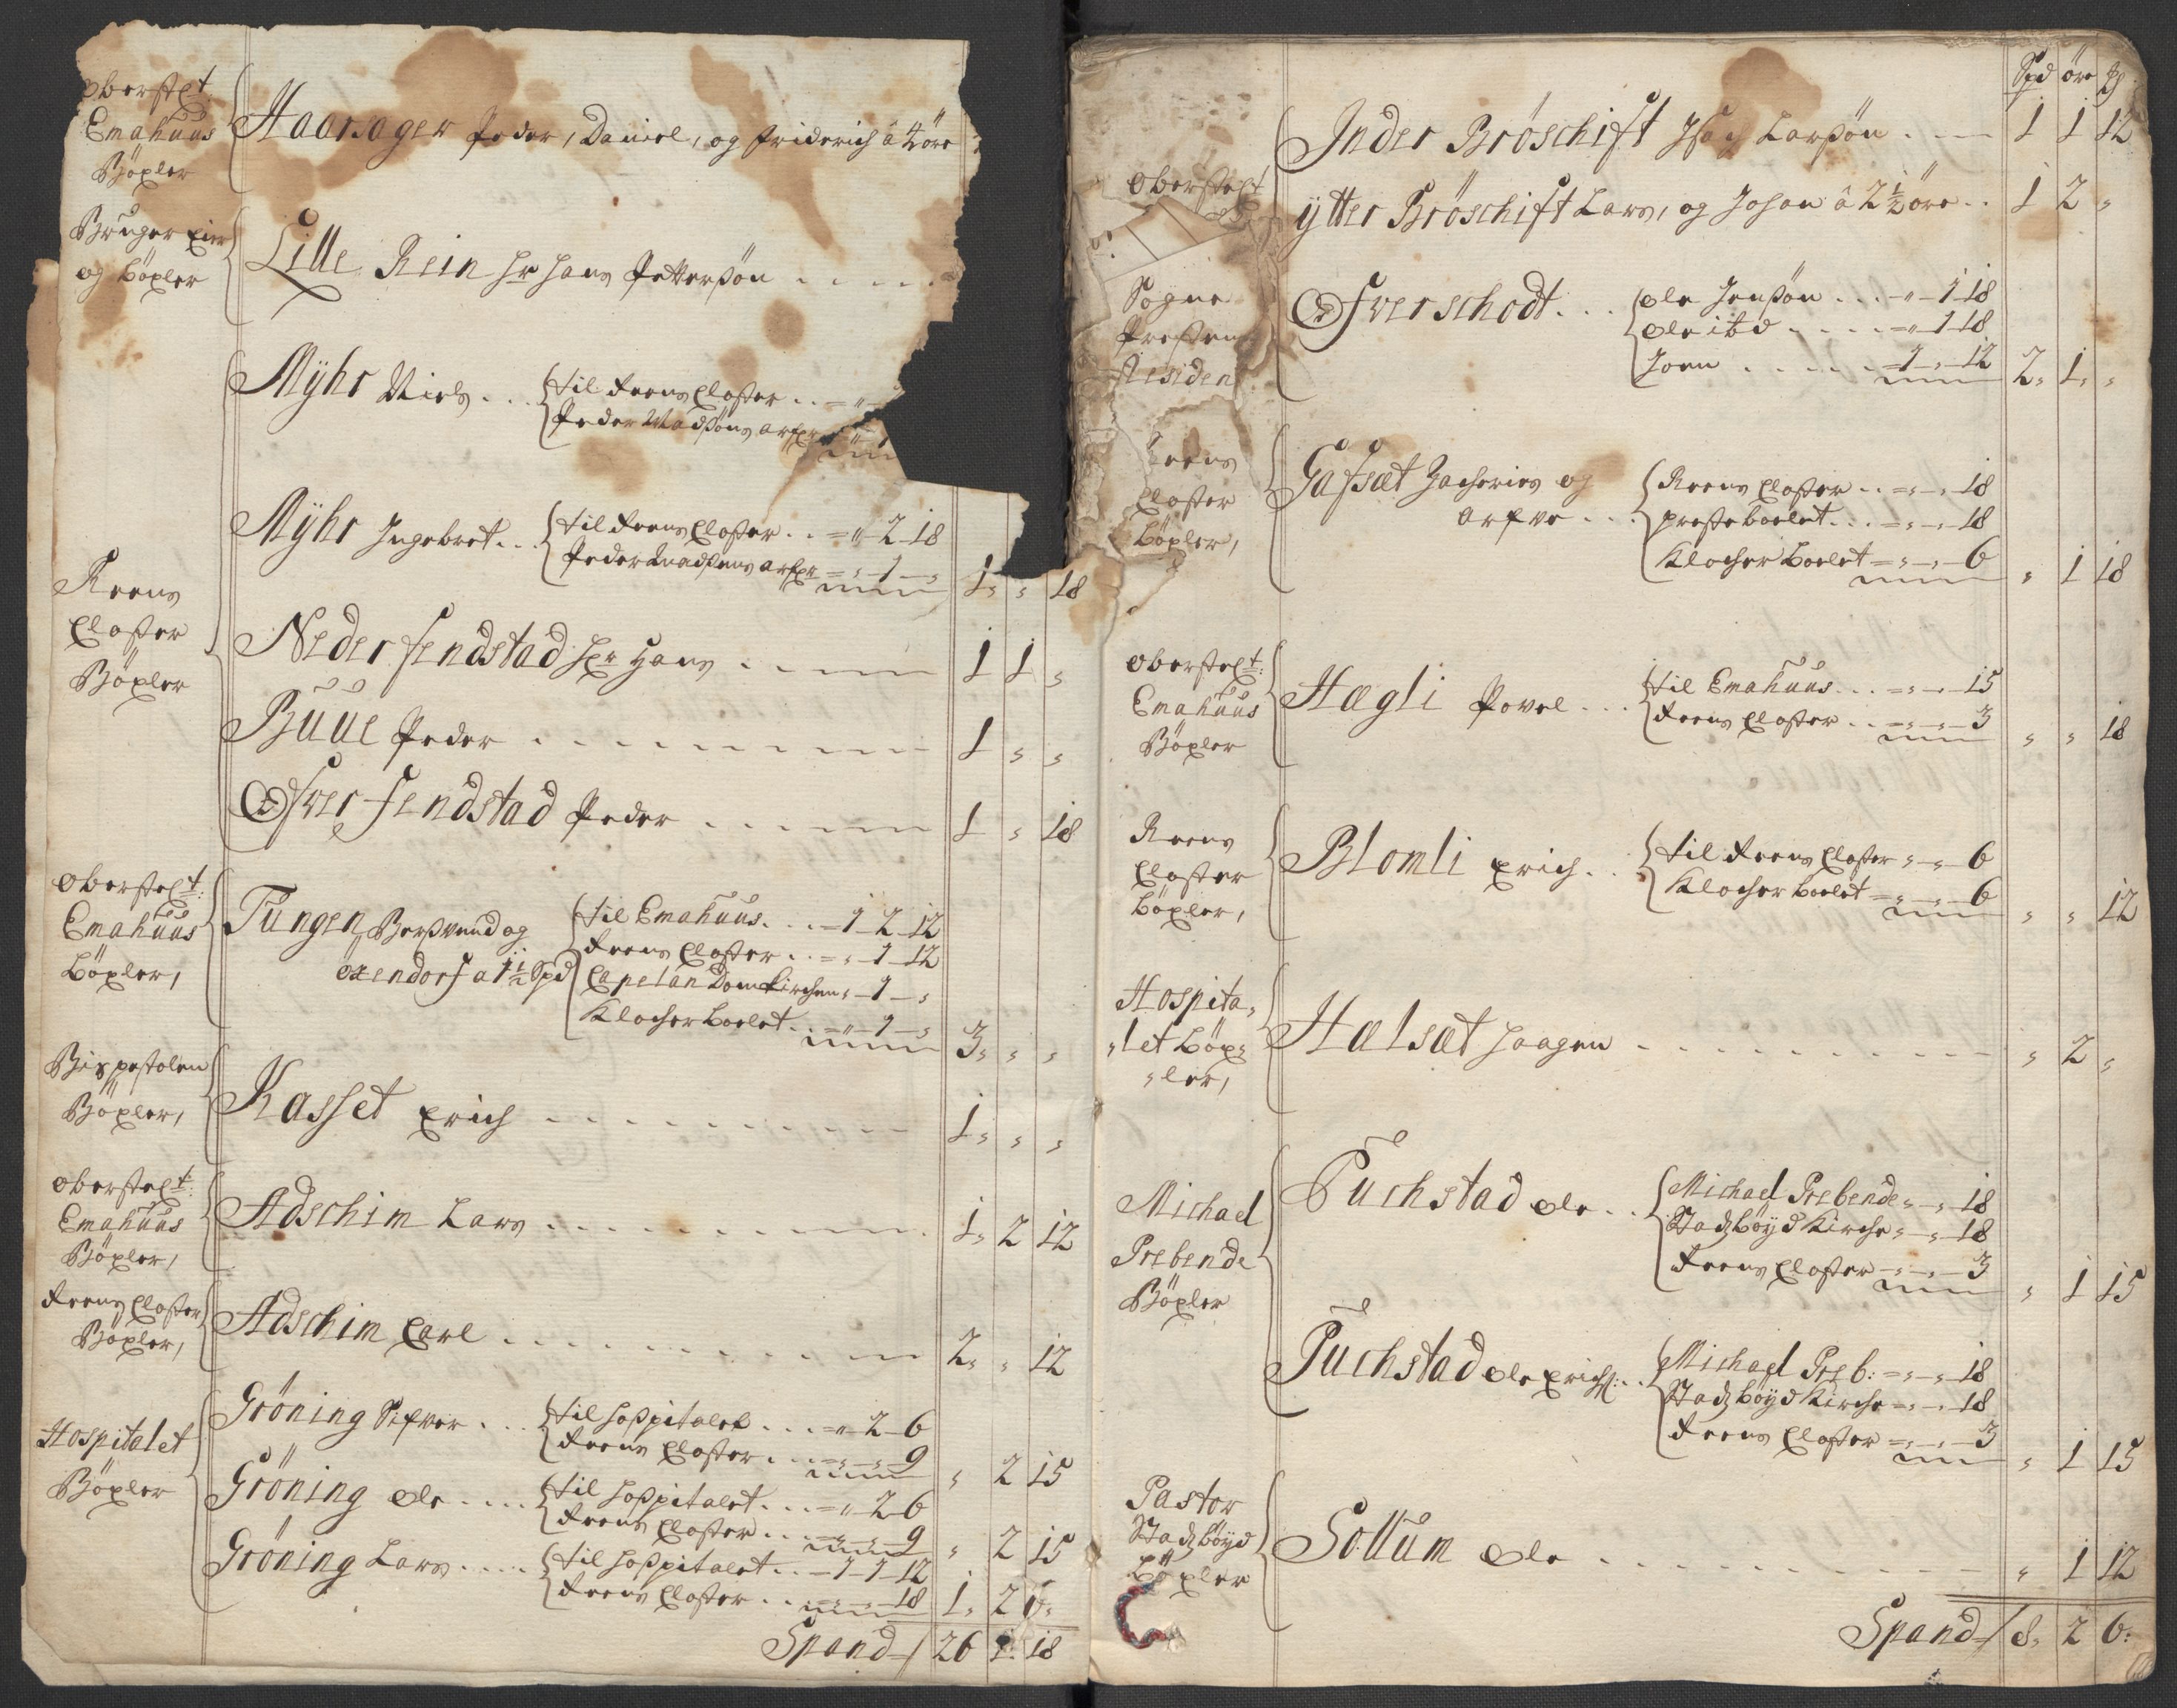 oberstlt:
Emahuus
Böxler
Haarsager Peder, Daniel, og Friderich â 4 öre
Bruger Eier
og böxler
Lille Rein Hr Hans Pettersön . . . . .
Myhr Niels . . . til Reens Closter . . = „
Peder Madsöns arfr
Myhr Ingebret . . til Reens Closter . . = „ - 2 - 18
Peder Madsens arfr = „ - 1 - „ 1 „ „ 18
Reens
Closter
Böxler
Neder fendstad Hr Hans . . . 1 1 „
Buue Peder . . . 1 „ „
Ofver fendstad Peder . . . 1 „ 18
oberstlt:
Emahuus
böxler,
Tungen, Bersvend og til Emahuus . . . - 1 - 2 - 12
Reens Closter . . = „ - 1 - 12
oxendorf a 1½ Spd Capelan Domkirchen „ - 1 - „
Klocher boelet . . = „ - 1 - „ 3 „ „
Bispestolen
Böxler,
Kasset Erich . . . 1 „ „
oberstlt:
Emahuus
Böxler,
Adschim Lars . . . 1 2 12
Reens Closter
Böxler,
Adschim Carl . . . 2 „ 12
Hospitalet
Böxler
Gröning Sifver . . . til Hospitalet . . . = „ - 2 - 6
Reens Closter . . . = „ - „ - 9 „ 2 15
Gröning ole . . . . til Hospitalet . . . = „ - 2 - 6
Reens Closter . . . = „ - „ - 9 „ 2 15
Gröning Lars . . . . til Hospitalet . . - 1 - 1 - 12
Reens Closter . . = „ - „ - 18 1 2 6
Spand / 26 1 18
Spd öre
Inder Bröschift Larsön . . . 1 1 12
oberstlt
ytter Bröschift Lars, og Johan â 2½ öre . . 1 2 „
Sogne
Presten
Residen
Ofverschodt . . . ole Jensön . . . - „ - 1 - 18
ole ibd . . . = „ - 1 - 18
Joen . . . - 1 - „ - 12 2 1 „
Reens
Closter
böxler,
Gafsæt Zacharies og Reens Closter . . = „ - „ - 18
arfve . . . presteboelet . . . = „ - „ - 18
Klocher boelet = „ - „ - 6 „ 1 18
oberstlt:
Emahuus
Böxler
Hægli Povel . . . til Emahuus . . . = „ - „ - 15
Reens Closter . . = „ - „ - 3 „ „ 18
Reens
Closter
böxler,
Blomli Erich . . til Reens Closter „ - „ 6
Klocher boelet = „ - „ - 6 „ „ 12
Hospita„
„let böx„
„ler,
Hælsæt Haagen . . . „ 2 „
Michael
Prebende
Böxler
Puchstad ole . . Michael Prebende „ - „ 18
Stadsböyd Kirche „ - „ 18
Reens Closter - „ - „ - 3 „ 1 15
Puchstad ole Erichs: . . Michael Preb: = „ - „ 18
Stadsböyd Kirche = „ - „ 18
Reens Closter = „ - „ - 3 „ 1 15
Pastor
Stadsböyd
böxler
Sollum ole . . . „ 1 12
Spand / 8 2 6: